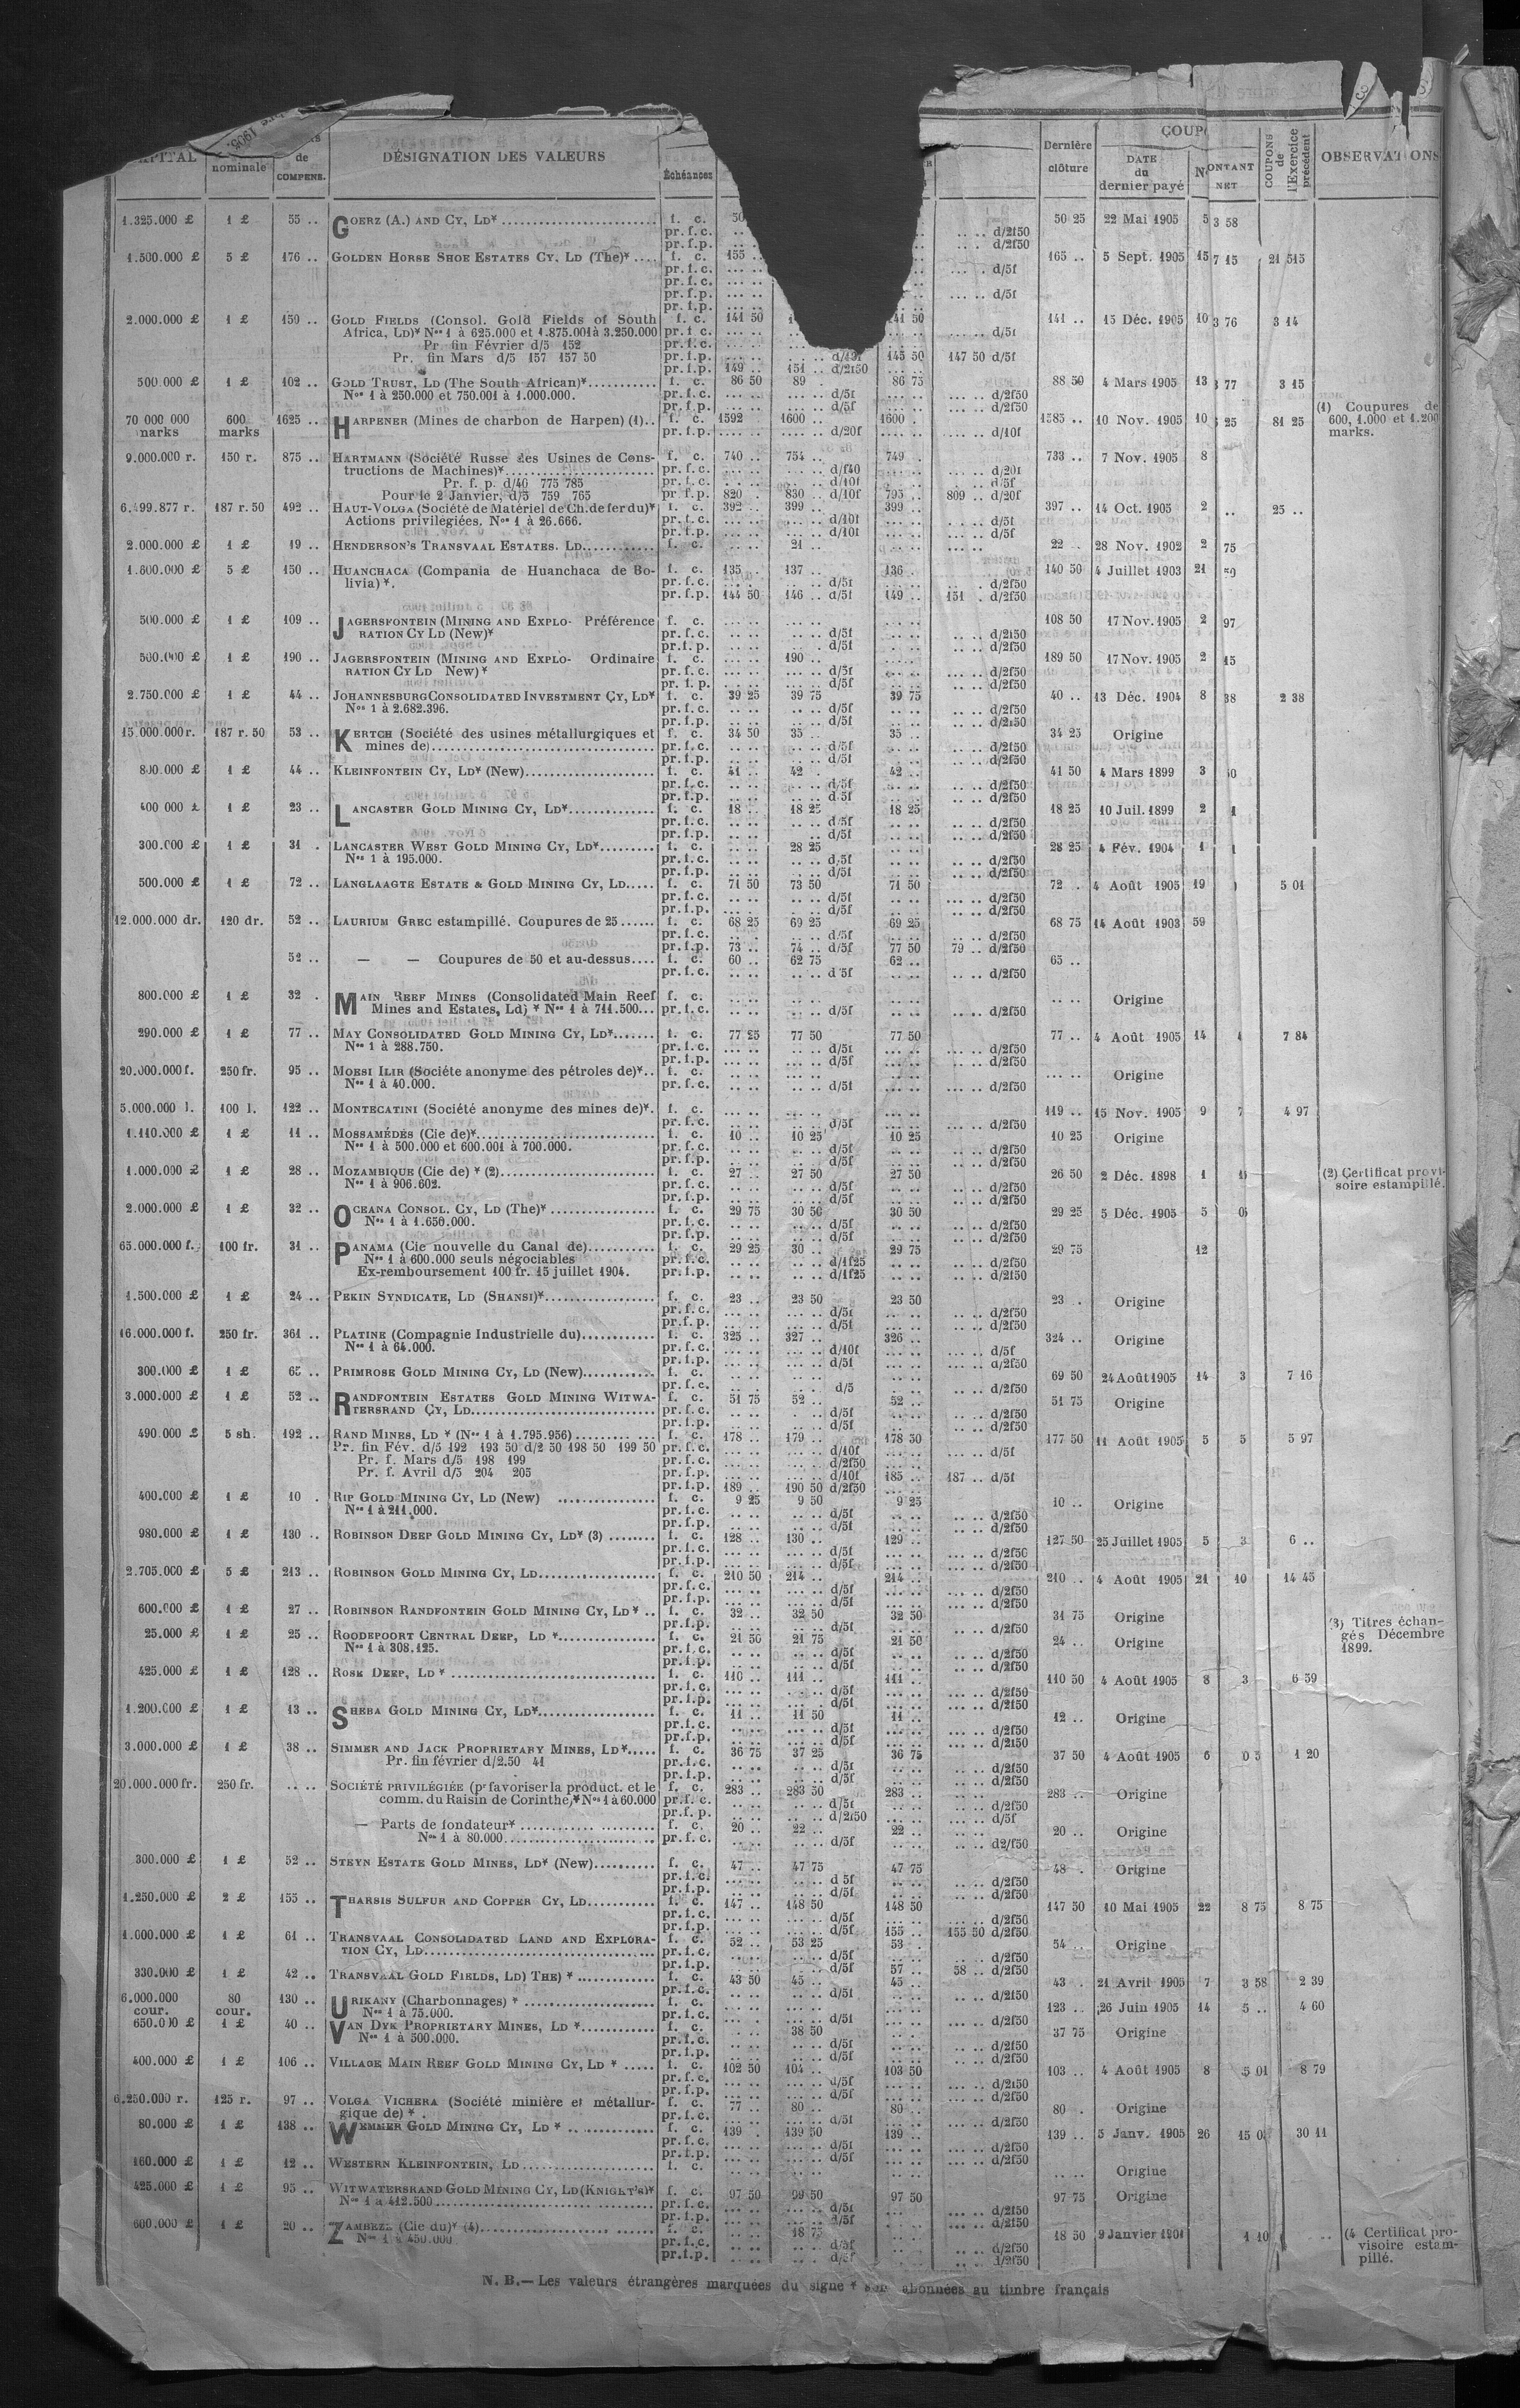 CAPITAL nominale de COMPENS. DÉSIGNATION DES VALEURS Échéances Dernière clôture COUP DATE du dernier payé N ONTANT NET COUPONS de l'Exercice précédent OBSERVATIONS
1.325.000 £ 1 £ 55 .. GOERZ (A.) AND CY, LD* f. c. 50 50 25 22 Mai 1905 5 3 58
pr. f. c. d/2f50
pr. f. p. d/2f50
1.500.000 £ 5 £ 176 .. GOLDEN HORSE SHOE ESTATES CY. LD (The)* f. c. 155 .. 165 .. 5 Sept. 1905 15 7 15 21 515
pr. f. c. d/5f
pr. f. c.
pr. f. p. d/5f
pr. f. p.
2.000.000 £ 1 £ 159 .. GOLD FIELDS (Consol. Gold Fields of South f. c. 141 50 141 50 141 .. 15 Déc. 1905 10 3 76 3 14
Africa, LD)* Nos 1 à 625.000 et 1.875.001 à 3.250.000 pr. f. c. d/5f
Pr. fin Février d/5 152 pr. f. c.
Pr. fin Mars d/5 157 157 50 pr. f. p. 145 50 147 50 d/5f
pr. f. p. 149 .. 151 .. d/2f50
500.000 £ 1 £ 102 .. GOLD TRUST, LD (The South African)* f. c. 86 50 89 . 86 75 88 50 4 Mars 1905 13 77 3 15
Nos 1 à 250.000 et 750.001 à 1.000.000. pr. f. c. d/5f d/2f50
pr. f. p. d/5f d/2f50
70 000 000 marks 600 marks 1625 .. HARPENER (Mines de charbon de Harpen) (1).. f. c. 1592 1600 .. 1600 . 1585 .. 10 Nov. 1905 10 25 81 25 (1) Coupures de 600, 1.000 et 1.200 marks.
pr. f. p. d/20f d/10f
9.000.000 r. 150 r. 875 .. HARTMANN (Société Russe des Usines de Cons- f. c. 740 .. 754 .. 749 . 733 .. 7 Nov. 1905 8
tructions de Machines)* pr. f. c. d/f40 d/20f
Pr. f. p. d/40 775 785 pr. f. c. d/10f d/5f
Pour le 2 Janvier, d/5 759 765 pr. f. p. 820 . 830 .. d/10f 795 .. 809 .. d/20f
6.499.877 r. 187 r. 50 492 .. HAUT-VOLGA (Société de Matériel de Ch. de fer du)* f. c. 392 .. 399 .. 399 .. 397 .. 14 Oct. 1905 2 .. 25 ..
Actions privilégiées. Nos 1 à 26.666. pr. f. c. d/10f d/5f
pr. f. p. d/10f d/5f
2.000.000 £ 1 £ 19 .. HENDERSON'S TRANSVAAL ESTATES. LD f. c. 21 .. 22 . 28 Nov. 1902 2 75
1.600.000 £ 5 £ 150 .. HUANCHACA (Compania de Huanchaca de Bo- f. c. 135 . 137 .. 136 . 140 50 4 Juillet 1903 21 50
livia)*. pr. f. c. d/5f d/2f50
pr. f. p. 144 50 146 .. d/5f 149 .. 151 . d/2f50
500.000 £ 1 £ 109 .. JAGERSFONTEIN (MINING AND EXPLO- Préférence f. c. 108 50 17 Nov. 1905 2 97
RATION CY LD (New)* pr. f. c. d/5f d/2f50
pr. f. p. d/5f d/2f50
500.000 £ 1 £ 190 .. JAGERSFONTEIN (MINING AND EXPLO- Ordinaire f. c. 190 .. 189 50 17 Nov. 1905 2 15
RATION CY LD New)* pr. f. c. d/5f d/2f50
pr. f. p. d/5f d/2f50
2.750.000 £ 1 £ 44 .. JOHANNESBURG CONSOLIDATED INVESTMENT CY, LD* f. c. 39 25 39 75 39 75 40 .. 13 Déc. 1904 8 38 2 38
Nos 1 à 2.682.396. pr. f. c. d/5f d/2f50
pr. f. p. d/5f d/2f50
15.000.000 r. 187 r. 50 53 .. KERTCH (Société des usines métallurgiques et f. c. 34 50 35 .. 35 .. 34 25 Origine
mines de) pr. f. c. d/5f d/2f50
pr. f. p. d/5f d/2f50
800.000 £ 1 £ 44 .. KLEINFONTEIN CY, LD* (New) f. c. 41 .. 42 . 42 .. 41 50 4 Mars 1899 3
pr. f. c. d/5f d/2f50
pr. f. p. d/5f d/2f50
400 000 £ 1 £ 23 .. LANCASTER GOLD MINING CY, LD* f. c. 18 .. 18 25 18 25 18 25 10 Juil. 1899 2
pr. f. c. d/5f d/2f50
pr. f. p. d/5f d/2f50
300.000 £ 1 £ 31 . LANCASTER WEST GOLD MINING CY, LD* f. c. 28 25 28 25 4 Fév. 1904 1
Nos 1 à 195.000. pr. f. c. d/5f d/2f50
pr. f. p. d/5f d/2f50
500.000 £ 1 £ 72 .. LANGLAAGTE ESTATE & GOLD MINING CY, LD f. c. 71 50 73 50 71 50 72 . 4 Août 1905 19 5 01
pr. f. c. d/5f d/2f50
pr. f. p. d/5f d/2f50
12.000.000 dr. 120 dr. 52 .. LAURIUM GREC estampillé. Coupures de 25 f. c. 68 25 69 25 69 25 68 75 14 Août 1903 59
pr. f. c. d/5f d/2f50
pr. f. p. 73 .. 74 .. d/5f 77 50 79 .. d/2f50
52 .. — — Coupures de 50 et au-dessus f. c. 60 .. 62 75 62 .. 65 ..
pr. f. c. d/5f d/2f50
800.000 £ 1 £ 32 . MAIN REEF MINES (Consolidated Main Reef f. c. Origine
Mines and Estates, Ld) * Nos 1 à 711.500... pr. f. c. d/5f d/2f50
290.000 £ 1 £ 77 .. MAY CONSOLIDATED GOLD MINING CY, LD* f. c. 77 25 77 50 77 50 77 .. 4 Août 1905 14 7 84
Nos 1 à 288.750. pr. f. c. d/5f d/2f50
pr. f. p. d/5f d/2f50
20.000.000 f. 250 fr. 95 .. MOESI ILIR (Société anonyme des pétroles de)*.. f. c. Origine
Nos 1 à 40.000. pr. f. c. d/5f d/2f50
5.000.000 l. 100 l. 122 .. MONTECATINI (Société anonyme des mines de)*. f. c. 119 .. 15 Nov. 1905 9 7 4 97
pr. f. c. d/5f d/2f50
1.110.000 £ 1 £ 11 .. MOSSAMÉDÈS (Cie de)* f. c. 10 .. 10 25 10 25 10 25 Origine
Nos 1 à 500.000 et 600.001 à 700.000. pr. f. c. d/5f d/2f50
pr. f. p. d/5f d/2f50
1.000.000 £ 1 £ 28 .. MOZAMBIQUE (Cie de) * (2) f. c. 27 .. 27 50 27 50 26 50 2 Déc. 1898 1 (2) Certificat provi-
Nos 1 à 906.602. pr. f. c. d/5f d/2f50 soire estampillé.
pr. f. p. d/5f d/2f50
2.000.000 £ 1 £ 32 .. OCEANA CONSOL. CY, LD (The)* f. c. 29 75 30 50 30 50 29 25 5 Déc. 1905 5
Nos 1 à 1.650.000. pr. f. c. d/5f d/2f50
pr. f. p. d/5f d/2f50
65.000.000 f. 100 fr. 31 .. PANAMA (Cie nouvelle du Canal de) f. c. 29 25 30 .. 29 75 29 75 12
Nos 1 à 600.000 seuls négociables pr. f. c. d/1f25 d/2f50
Ex-remboursement 100 fr. 15 juillet 1904. pr. f. p. d/1f25 d/2f50
1.500.000 £ 1 £ 24 .. PEKIN SYNDICATE, LD (SHANSI)* f. c. 23 .. 23 50 23 50 23 . Origine
pr. f. c. d/5f d/2f50
pr. f. p. d/5f d/2f50
16.000.000 f. 250 fr. 361 .. PLATINE (Compagnie Industrielle du) f. c. 325 .. 327 .. 326 .. 324 .. Origine
Nos 1 à 64.000. pr. f. c. d/10f d/5f
pr. f. p. d/5f d/2f50
300.000 £ 1 £ 65 .. PRIMROSE GOLD MINING CY, LD (New) f. c. 69 50 24 Août 1905 14 3 7 16
pr. f. c. d/5 d/2f50
3.000.000 £ 1 £ 52 .. RANDFONTEIN ESTATES GOLD MINING WITWA- f. c. 51 75 52 .. 52 .. 51 75 Origine
TERSRAND CY, LD pr. f. c. d/5f d/2f50
pr. f. p. d/5f d/2f50
490.000 £ 5 sh. 192 .. RAND MINES, LD * (Nos 1 à 1.795.956) f. c. 178 .. 179 .. 178 50 177 50 11 Août 1905 5 5 5 97
Pr. fin Fév. d/5 192 193 50 d/2 50 198 50 199 50 pr. f. c. d/10f d/5f
Pr. f. Mars d/5 198 199 pr. f. c. d/2f50
Pr. f. Avril d/5 204 205 pr. f. p. d/10f 185 .. 187 .. d/5f
pr. f. p. 189 .. 190 50 d/2f50
400.000 £ 1 £ 10 . RIP GOLD MINING CY, LD (New) f. c. 9 25 9 50 9 25 10 .. Origine
Nos 1 à 211.000. pr. f. c. d/5f d/2f50
pr. f. p. d/5f d/2f50
980.000 £ 1 £ 130 .. ROBINSON DEEP GOLD MINING CY, LD* (3) f. c. 128 .. 130 .. 129 .. 127 50 25 Juillet 1905 5 3 6 ..
pr. f. c. d/5f d/2f50
pr. f. p. d/5f d/2f50
2.705.000 £ 5 £ 213 .. ROBINSON GOLD MINING CY, LD f. c. 210 50 214 .. 214 .. 210 .. 4 Août 1905 21 10 14 45
pr. f. c. d/5f d/2f50
pr. f. p. d/5f d/2f50
600.000 £ 1 £ 27 .. ROBINSON RANDFONTEIN GOLD MINING CY, LD* .. f. c. 32 .. 32 50 32 50 31 75 Origine (3) Titres échan-
pr. f. p. d/5f d/2f50 gés Décembre
25.000 £ 1 £ 25 .. ROODEPOORT CENTRAL DEEP, LD * f. c. 21 50 21 75 21 50 24 .. Origine 1899.
Nos 1 à 308.125. pr. f. c. d/5f d/2f50
pr. f. p. d/5f d/2f50
425.000 £ 1 £ 128 .. ROSE DEEP, LD * f. c. 110 .. 111 .. 111 .. 110 50 4 Août 1905 8 3 6 59
pr. f. c. d/5f d/2f50
pr. f. p. d/5f d/2f50
1.200.000 £ 1 £ 13 .. SHEBA GOLD MINING CY, LD* f. c. 11 .. 11 50 11 .. 12 .. Origine
pr. f. c. d/5f d/2f50
pr. f. p. d/5f d/2f50
3.000.000 £ 1 £ 38 .. SIMMER AND JACK PROPRIETARY MINES, LD* f. c. 36 75 37 25 36 75 37 50 4 Août 1905 6 1 20
Pr. fin février d/2.50 41 pr. f. c. d/5f d/2f50
pr. f. p. d/5f d/2f50
20.000.000 fr. 250 fr. .. .. SOCIÉTÉ PRIVILÉGIÉE (pr favoriser la product. et le f. c. 283 .. 283 50 283 .. 283 .. Origine
comm. du Raisin de Corinthe)* Nos 1 à 60.000 pr. f. c. d/5f d/2f50
pr. f. p. d/2f50 d/5f
— Parts de fondateur* f. c. 20 .. 22 .. 22 .. 20 .. Origine
Nos 1 à 80.000 pr. f. c. d/5f d2/f50
300.000 £ 1 £ 52 .. STEYN ESTATE GOLD MINES, LD* (New) f. c. 47 .. 47 75 47 75 48 . Origine
pr. f. c. d 5f d/2f50
pr. f. p. d/5f d/2f50
1.250.000 £ 2 £ 155 .. THARSIS SULFUR AND COPPER CY, LD f. c. 147 .. 148 50 148 50 147 50 10 Mai 1905 22 8 75 8 75
pr. f. c. d/5f d/2f50
pr. f. p. d/5f 155 .. 155 50 d/2f50
1.000.000 £ 1 £ 61 .. TRANSVAAL CONSOLIDATED LAND AND EXPLORA- f. c. 52 .. 53 25 53 . 54 .. Origine
TION CY, LD pr. f. c. d/5f d/2f50
pr. f. p. d/5f 57 .. 58 .. d/2f50
330.000 £ 1 £ 42 .. TRANSVAAL GOLD FIELDS, LD) THE) * f. c. 43 50 45 .. 45 .. 43 . 21 Avril 1905 7 3 58 2 39
pr. f. c. d/5f d/2f50
6.000.000 cour. 80 cour. 130 .. URIKANY (Charbonnages) * f. c. 123 .. 26 Juin 1905 14 5 .. 4 60
Nos 1 à 75.000. pr. f. c. d/5f d/2f50
650.000 £ 1 £ 40 .. VAN DYK PROPRIETARY MINES, LD * f. c. 38 50 37 75 Origine
Nos 1 à 500.000. pr. f. c. d/5f d/2f50
pr. f. p. d/5f d/2f50
400.000 £ 1 £ 106 .. VILLAGE MAIN REEF GOLD MINING CY, LD * f. c. 102 50 104 .. 103 50 103 .. 4 Août 1905 8 5 01 8 79
pr. f. c. d/5f d/2f50
pr. f. p. d/5f d/2f50
6.250.000 r. 125 r. 97 .. VOLGA VICHERA (Société minière et métallur- f. c. 77 .. 80 .. 80 .. 80 . Origine
gique de) *. pr. f. c. d/5f d/2f50
80.000 £ 1 £ 138 .. WEMMER GOLD MINING CY, LD * f. c. 139 . 139 50 139 .. 139 .. 5 Janv. 1905 26 15 30 11
pr. f. c. d/5f d/2f50
pr. f. p. d/5f d/2f50
160.000 £ 1 £ 12 .. WESTERN KLEINFONTEIN, LD f. c. Origine
425.000 £ 1 £ 95 .. WITWATERSRAND GOLD MINING CY, LD (KNIGHT'S)* f. c. 97 50 99 50 97 50 97 75 Origine
Nos 1 à 412.500 pr. f. c. d/5f d/2f50
pr. f. p. d/5f d/2f50
600.000 £ 1 £ 20 .. ZAMBÈZE (Cie du)* (4) f. c. 18 75 18 50 9 Janvier 1901 1 10 (4 Certificat pro-
Nos 1 à 450.000 pr. f. c. d/5f d/2f50 visoire estam-
pr. f. p. d/5f d/2f50 pillé.
N. B.— Les valeurs étrangères marquées du signe * abonnées au timbre français